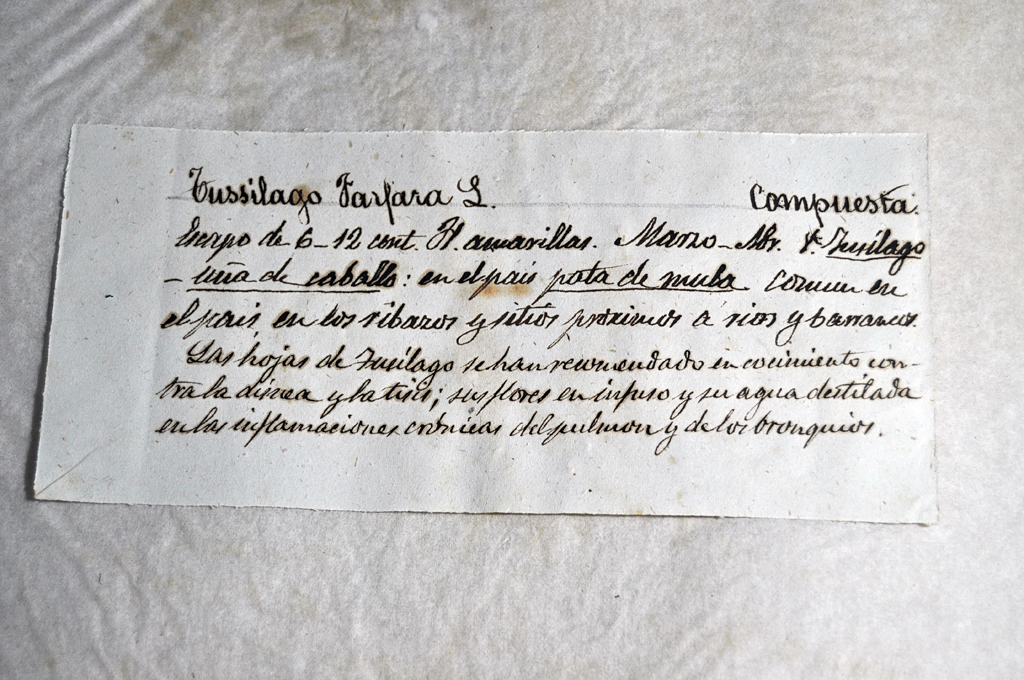 Tussilago Farfara L. Compuesta.
Escapo de 6-12 cent. Fl. amarillas. Marzo-Abr. V. Tusilago
- uña de caballo: en el pais pata de mula comun en
el pais en los ribazos y sitios próximos á rios y barrancos.
Las hojas de Tusilago se han recomendado en cocimiento con-
tra la disnea y la tisis; sus flores en infuso y su agua destilada
en las inflamaciones crónicas del pulmon y de los bronquios.